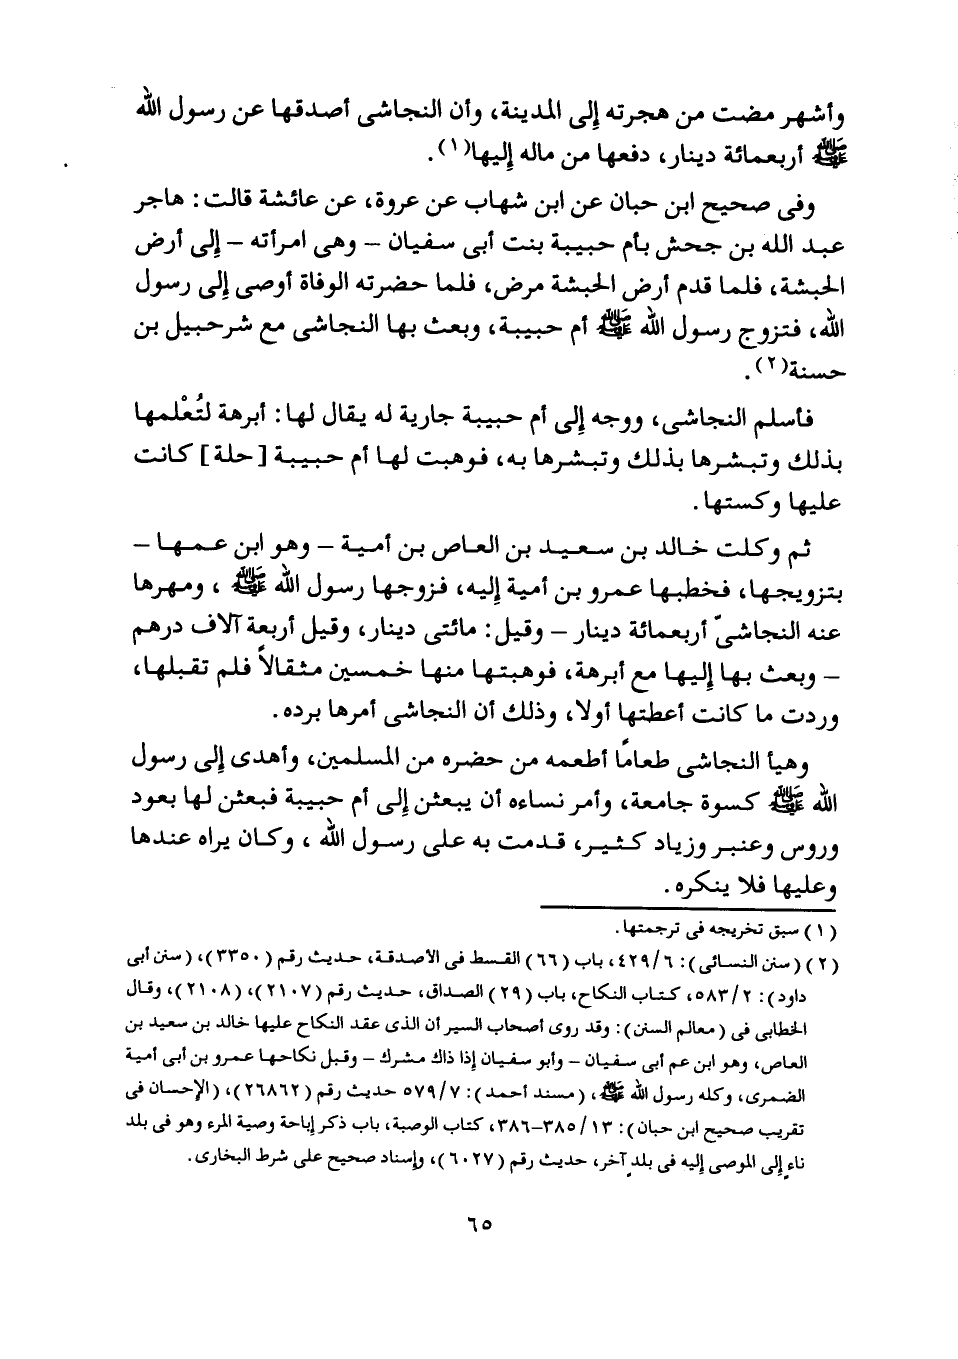 وأشهر مضت من هجرته إلى المدينة، وأن النجاشى أصدقها عن رسول الله
ﷺ أربعمائة دينار، دفعها من ماله إليها(١).
وفى صحيح ابن حبان عن ابن شهاب عن عروة، عن عائشة قالت: هاجر
عبد الله بن جحش بأم حبيبة بنت أبى سفيان – وهى امرأته – إلى أرض
الحبشة، فلما قدم أرض الحبشة مرض، فلما حضرته الوفاة أوصى إلى رسول
الله، فتزوج رسول الله ﷺ أم حبيبة، وبعث بها النجاشى مع شرحبيل بن
حسنة(٢).
فأسلم النجاشى، ووجه إلى أم حبيبة جارية له يقال لها: أبرهة لتُعْلمها
بذلك وتبشرها بذلك وتبشرها به، فوهبت لها أم حبيبة [حلة] كانت
عليها وكستها.
ثم وكلت خالد بن سعيد بن العاص بن أمية – وهو ابن عمها –
بتزويجها، فخطبها عمرو بن أمية إليه، فزوجها رسول الله ﷺ ، ومهرها
عنه النجاشىّ أربعمائة دينار – وقيل: مائتى دينار، وقيل أربعة آلاف درهم
– وبعث بها إليها مع أبرهة، فوهبتها منها خمسين مثقالاً فلم تقبلها،
وردت ما كانت أعطتها أولا، وذلك أن النجاشى أمرها برده.
وهيأ النجاشى طعامًا أطعمه من حضره من المسلمين، وأهدى إلى رسول
الله ﷺ كسوة جامعة، وأمر نساءه أن يبعثن إلى أم حبيبة فبعثن لها بعود
وروس وعنبر وزياد كثير، قدمت به على رسول الله ، وكان يراه عندها
وعليها فلا ينكره.
(١) سبق تخريجه فى ترجمتها.
(٢) (سنن النسائى): ٦/٤٢٩، باب (٦٦) القسط فى الأصدقة، حديث رقم (٣٣٥٠)، (سنن أبى
داود): ٢/٥٨٣، كتاب النكاح، باب (٢٩) الصداق، حديث رقم (٢١٠٧)، (٢١٠٨)، وقال
الخطابى فى (معالم السنن): وقد روى أصحاب السير أن الذى عقد النكاح عليها خالد بن سعيد بن
العاص، وهو ابن عم أبى سفيان – وأبو سفيان إذا ذاك مشرك – وقبل نكاحها عمرو بن أبى أمية
الضمرى، وكله رسول الله ﷺ، (مسند أحمد): ٧/٥٧٩ حديث رقم (٢٦٨٦٢)، (الإحسان فى
تقريب صحيح ابن حبان): ١٣/٣٨٥–٣٨٦، كتاب الوصبة، باب ذكر إباحة وصية المرء وهو فى بلد
ناءٍ إلى الموصى إليه فى بلدٍ آخر، حديث رقم (٦٠٢٧)، وإسناد صحيح على شرط البخارى.
٦٥